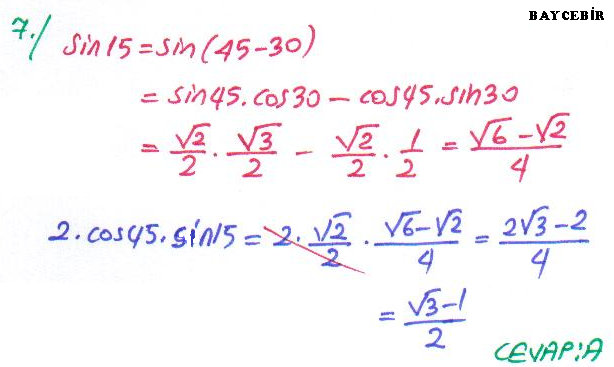 BAYCEBİR
7./ sin15 = sin(45-30)
= sin45.cos30 - cos45.sin30
= √2/2 . √3/2 - √2/2 . 1/2 = (√6-√2)/4
2.cos45.sin15 = 2.√2/2 . (√6-√2)/4 = (2√3-2)/4
= (√3-1)/2
CEVAP:A